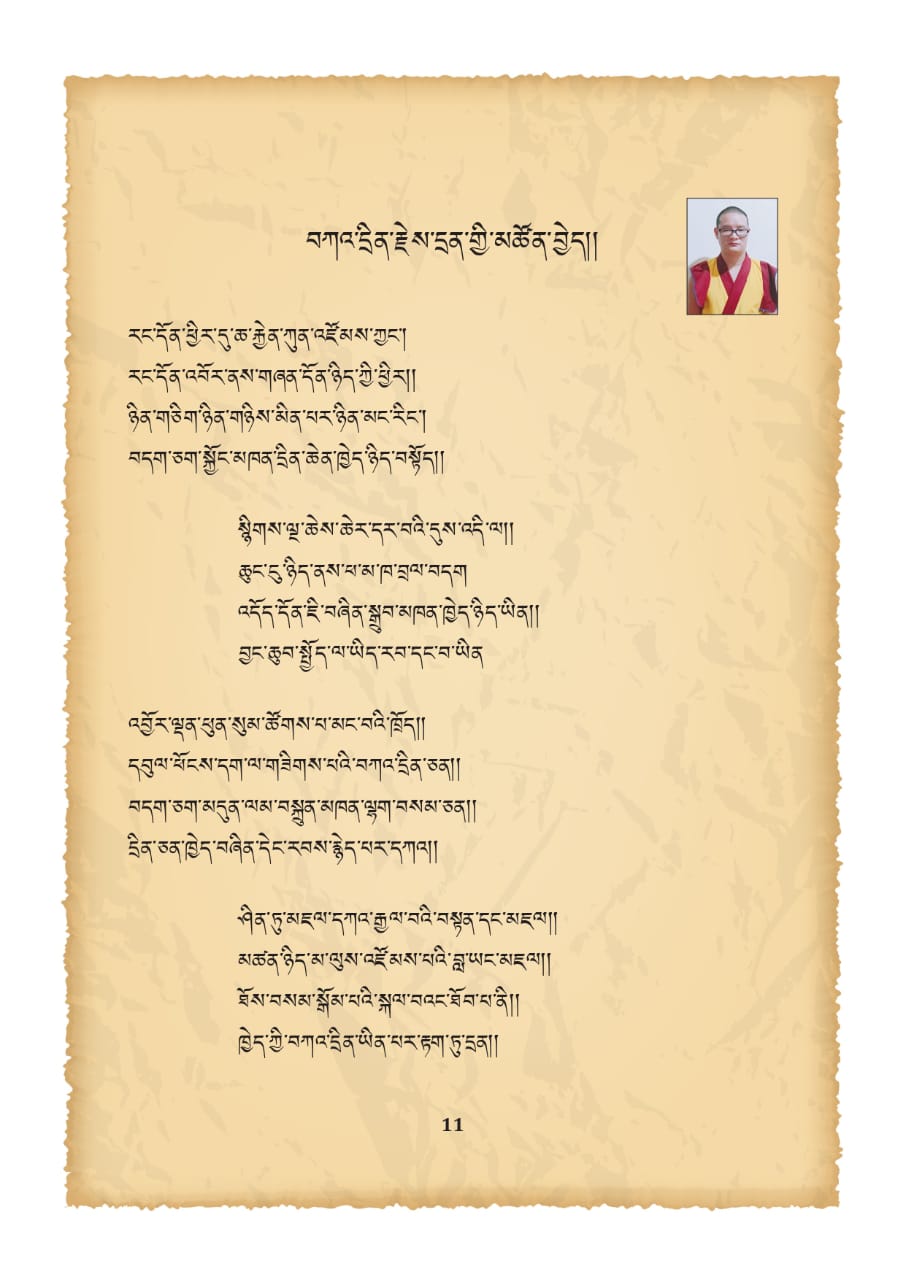 བཀའ་དྲིན་རྗེས་དྲན་གྱི་མཚོན་བྱེད།།
རང་དོན་ཕྱིར་དུ་ཆ་རྐྱེན་ཀུན་འཛོམས་ཀྱང་།
རང་དོན་འབོར་ནས་གཞན་དོན་ཉིད་ཀྱི་ཕྱིར།།
ཉིན་གཅིག་ཉིན་གཉིས་མིན་པར་ཉིན་མང་རིང་།
བདག་ཅག་སྐྱོང་མཁན་དྲིན་ཆེན་ཁྱེད་ཉིད་བསྟོད།།
སྙིགས་ལྔ་ཆེས་ཆེར་དར་བའི་དུས་འདི་ལ།།
ཆུང་ངུ་ཉིད་ནས་ཕ་མ་ཁ་བྲལ་བདག
འདོད་དོན་ཇི་བཞིན་སྒྲུབ་མཁན་ཁྱེད་ཉིད་ཡིན།།
བྱང་ཆུབ་སྤྱོད་ལ་ཡིད་རབ་དང་བ་ཡིན
འབྱོར་ལྡན་ཕུན་སུམ་ཚོགས་པ་མང་བའི་ཁྲོད།།
དབུལ་ཕོངས་དག་ལ་གཟིགས་པའི་བཀའ་དྲིན་ཅན།།
བདག་ཅག་མདུན་ལམ་བསྐྲུན་མཁན་ལྷག་བསམ་ཅན།།
དྲིན་ཅན་ཁྱེད་བཞིན་དེང་རབས་རྙེད་པར་དཀའ།།
ཤིན་ཏུ་མཇལ་དཀའ་རྒྱལ་བའི་བསྟན་དང་མཇལ།།
མཚན་ཉིད་མ་ལུས་འཛོམས་པའི་བླ་ཡང་མཇལ།།
ཐོས་བསམ་སྒོམ་པའི་སྐལ་བའང་ཐོབ་པ་ནི།།
ཁྱེད་ཀྱི་བཀའ་དྲིན་ཡིན་པར་རྟག་ཏུ་དྲན།།
11